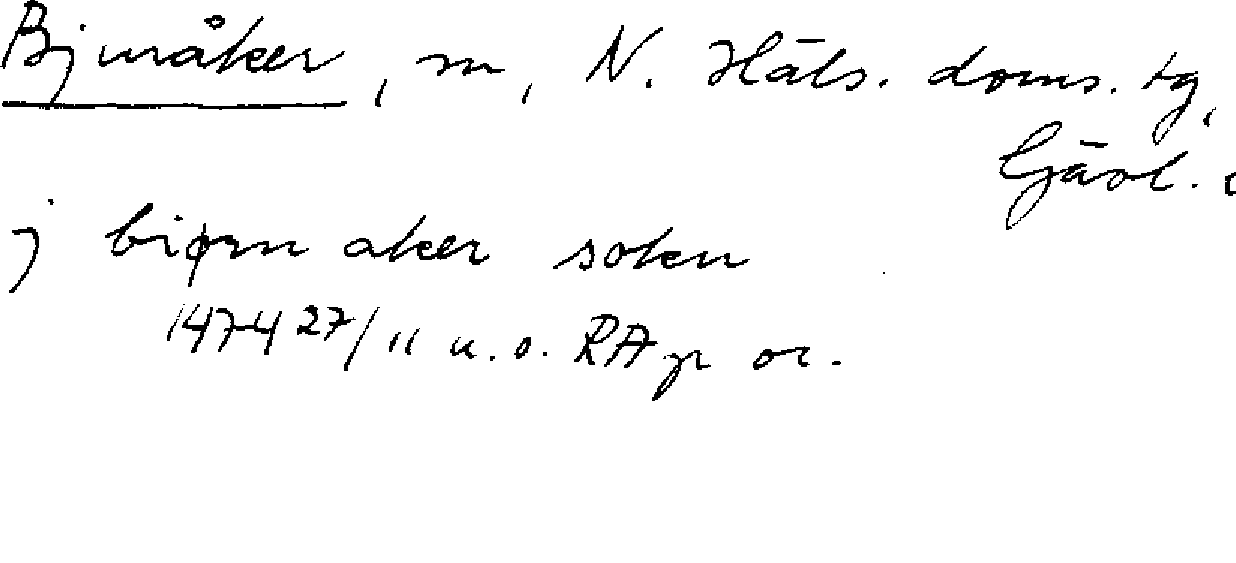 Bjuråker, sn, N. Häls. doms. tg,
Gävl. l
j biørn aker sokn
1474 27/11 u.o. RA p or.